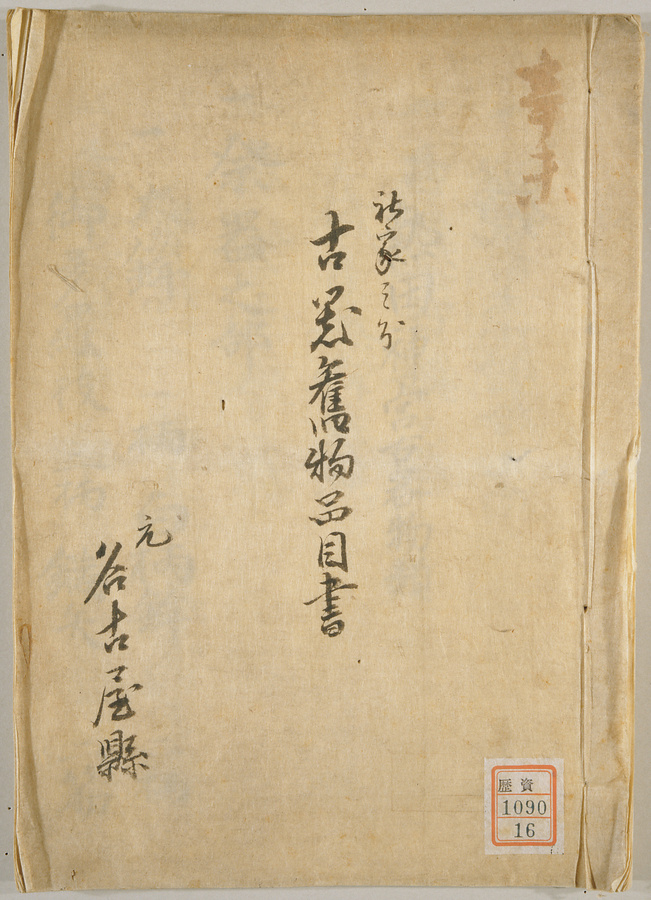 辛未
社家之分
古器舊物品目書
元
名古屋縣
歴資
1090
16